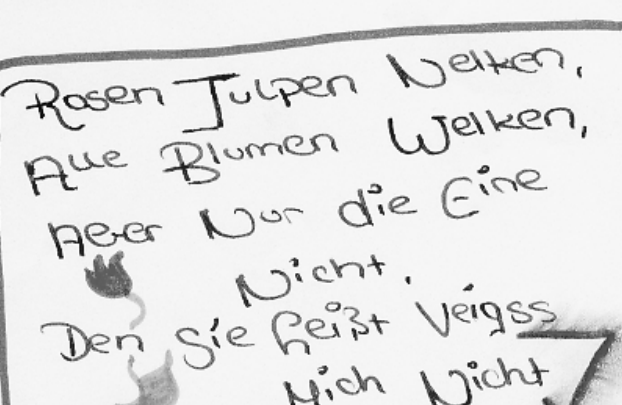 Rosen Tulpen Nelken,
Alle Blumen Welken,
Aber Nur die Eine
Nicht.
Den Sie heißt Veigss
Mich Nicht